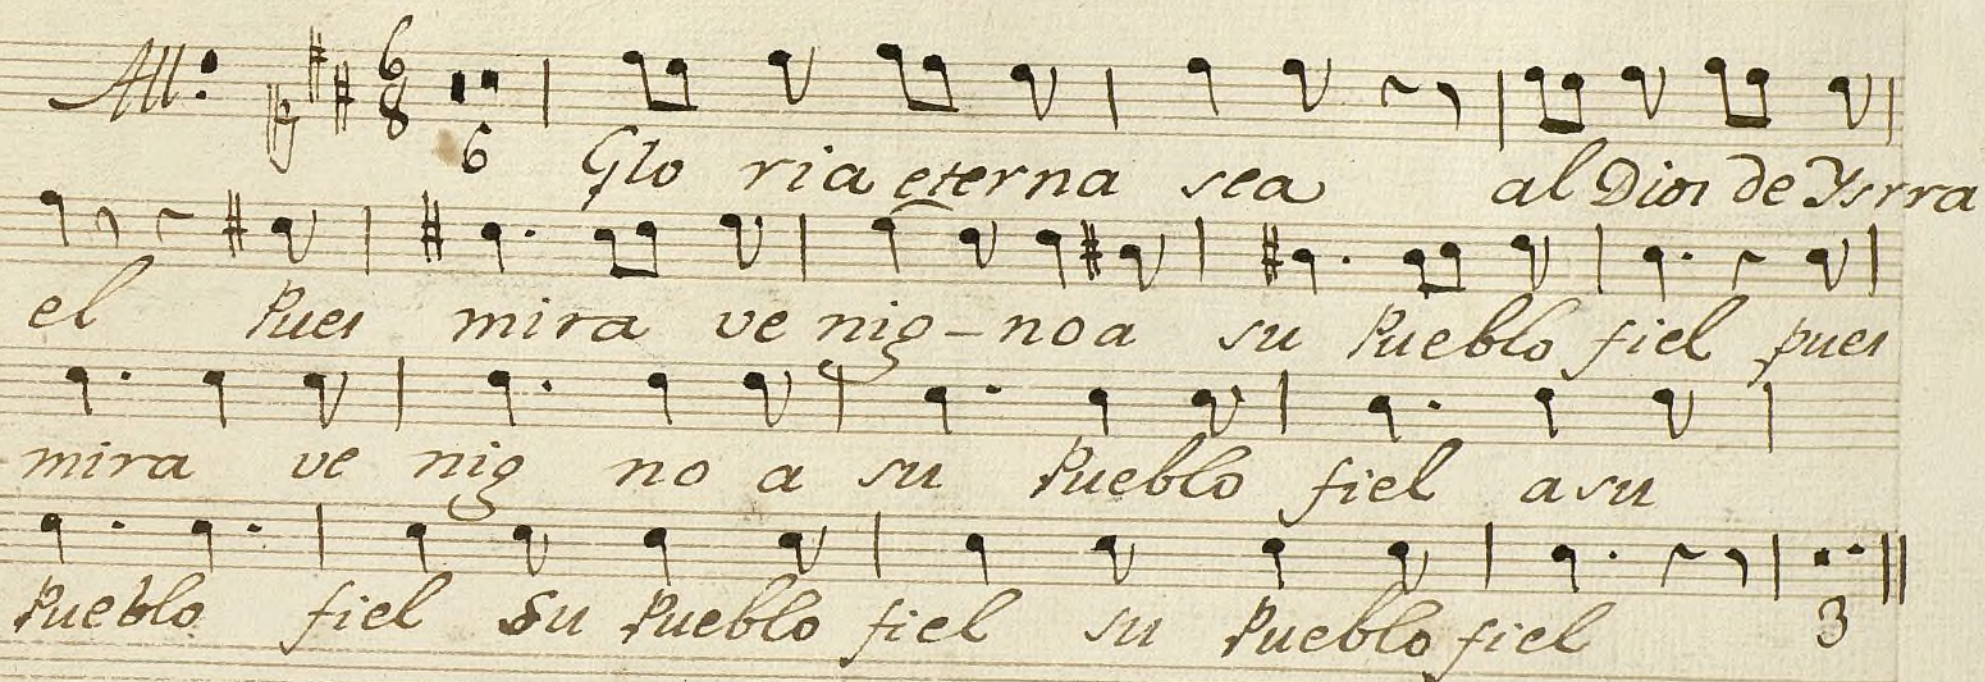 All:
6
8
6
Glo ria eterna sea al Dios de Ysrra
el Pues mira ve nig-no a su Pueblo fiel pues
mira ve nig no a su Pueblo fiel a su
Pueblo fiel su Pueblo fiel su Pueblo fiel 3